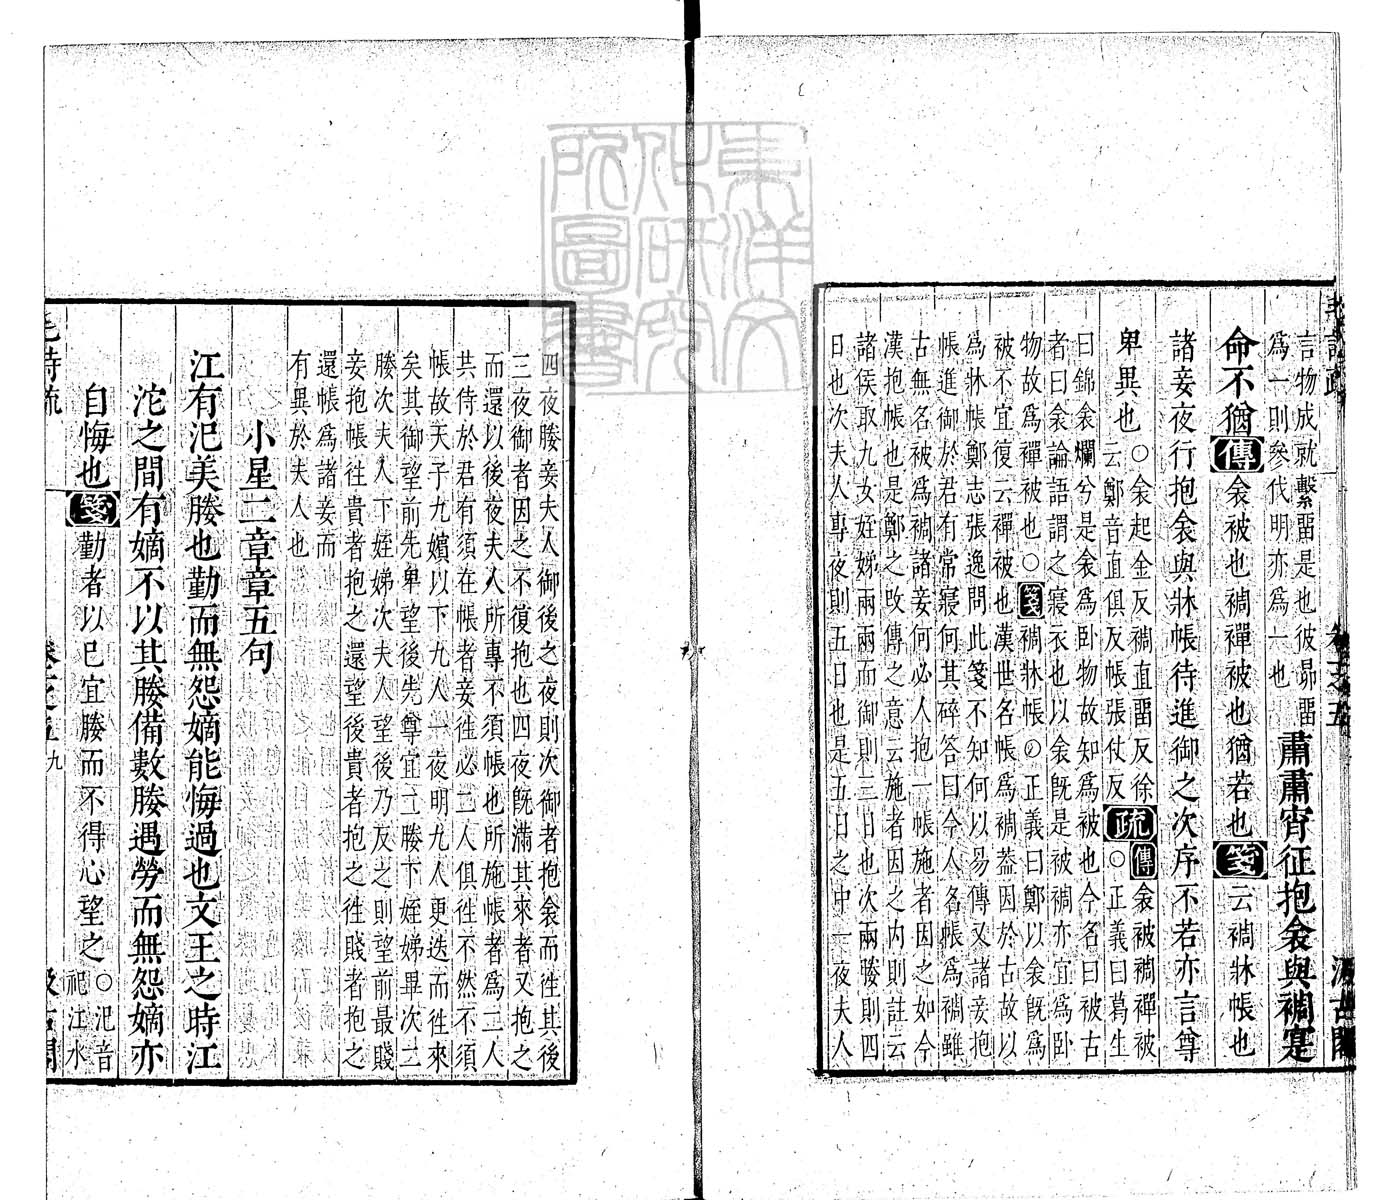 言物成就繫畱是也彼昴畱
爲一則參伐明亦爲一也
肅肅宵征抱衾與裯寔
命不猶傳衾被也裯襌被也猶若也箋云裯牀帳也
諸妾夜行抱衾與牀帳待進御之次序不若亦言尊
卑異也
○衾起金反裯直畱反徐
云鄭音直俱反帳張仗反
疏傳衾被裯襌被
○正義曰葛生
曰錦衾爛兮是衾爲卧物故知爲被也今名曰被古
者曰衾論語謂之寢衣也以衾旣是被裯亦宜爲卧
物故爲襌被也○箋裯牀帳○正義曰鄭以衾旣爲
被不宜復云襌被也漢世名帳爲裯葢因於古故以
爲牀帳鄭志張逸問此箋不知何以易傳又諸妾抱
帳進御於君有常寢何其碎答曰今人名帳爲裯雖
古無名被爲裯諸妾何必人抱一帳施者因之如今
漢抱帳也是鄭之改傳之意云施者因之内則註云
諸侯取九女姪娣兩兩而御則三日也次兩媵則四
日也次夫人專夜則五日也是五日之中一夜夫人
四夜媵妾夫人御後之夜則次御者抱衾而徃其後
三夜御者因之不復抱也四夜旣滿其來者又抱之
而還以後夜夫人所專不須帳也所施帳者爲二人
共侍於君有須在帳者妾徃必二人俱徃不然不須
帳故天子九嬪以下九人一夜明九人更迭而徃來
矣其御望前先卑望後先尊宜二媵下姪娣畢次二
媵次夫人下姪娣次夫人望後乃反之則望前最賤
妾抱帳徃貴者抱之還望後貴者抱之徃賤者抱之
還帳爲諸妾而
有異於夫人也
小星二章章五句
江有汜美媵也勤而無怨嫡能悔過也文王之時江
沱之間有嫡不以其媵備數媵遇勞而無怨嫡亦
自悔也箋勤者以已宜媵而不得心望之
○汜音
祀江水
毛詩疏
卷二之五
九
汲古閣
東洋文
化研究
所圖書